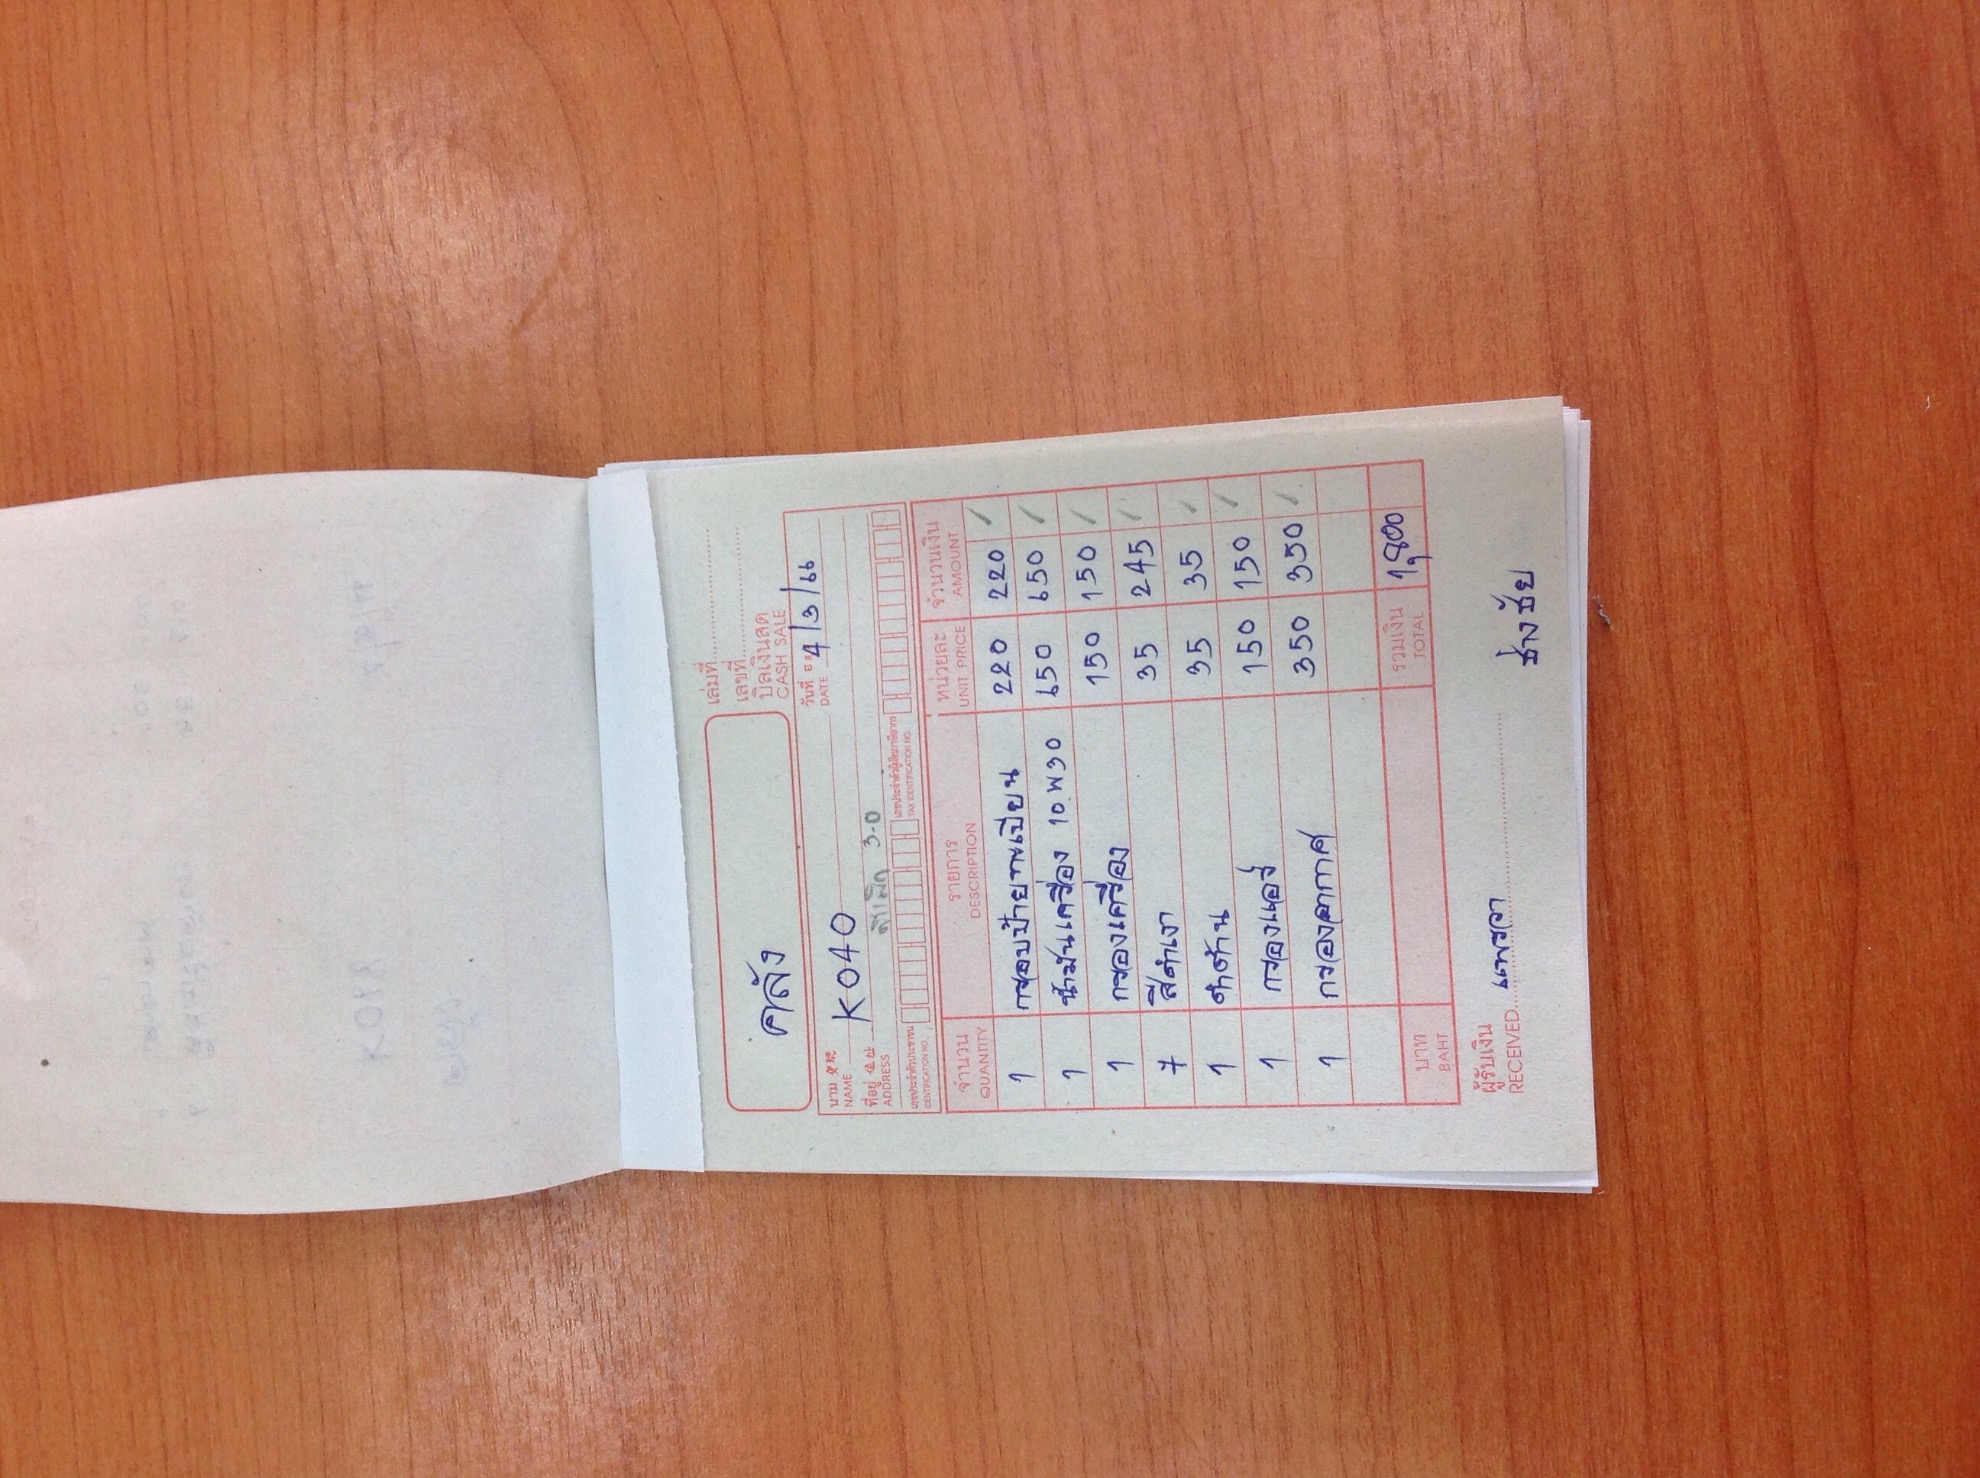 เล่มที่
เลขที่
บิลเงินสด
CASH SALE
คลัง
วันที่ 日期 DATE 4/3/66
นาม 寶號 NAME K040
ที่อยู่ 住址 ADDRESS 3.0
เลขประจำตัวประชาชน IDENTIFICATION NO. เลขประจำตัวผู้เสียภาษีอากร TAX IDENTIFICATION NO.
จำนวน รายการ หน่วยละ จำนวนเงิน
QUANTITY DESCRIPTION UNIT PRICE AMOUNT
1 กรอบป้ายทะเบียน 220 220 /
1 น้ำมันเครื่อง 10W30 650 650 /
1 กรองเครื่อง 150 150 /
7 สีดำเงา 35 245 /
1 ดำด้าน 35 35 /
1 กรองแอร์ 150 150 /
1 กรองอากาศ 350 350 /
บาท BAHT รวมเงิน TOTAL 1,800
ผู้รับเงิน
RECEIVED แพรวา ช่างชัย